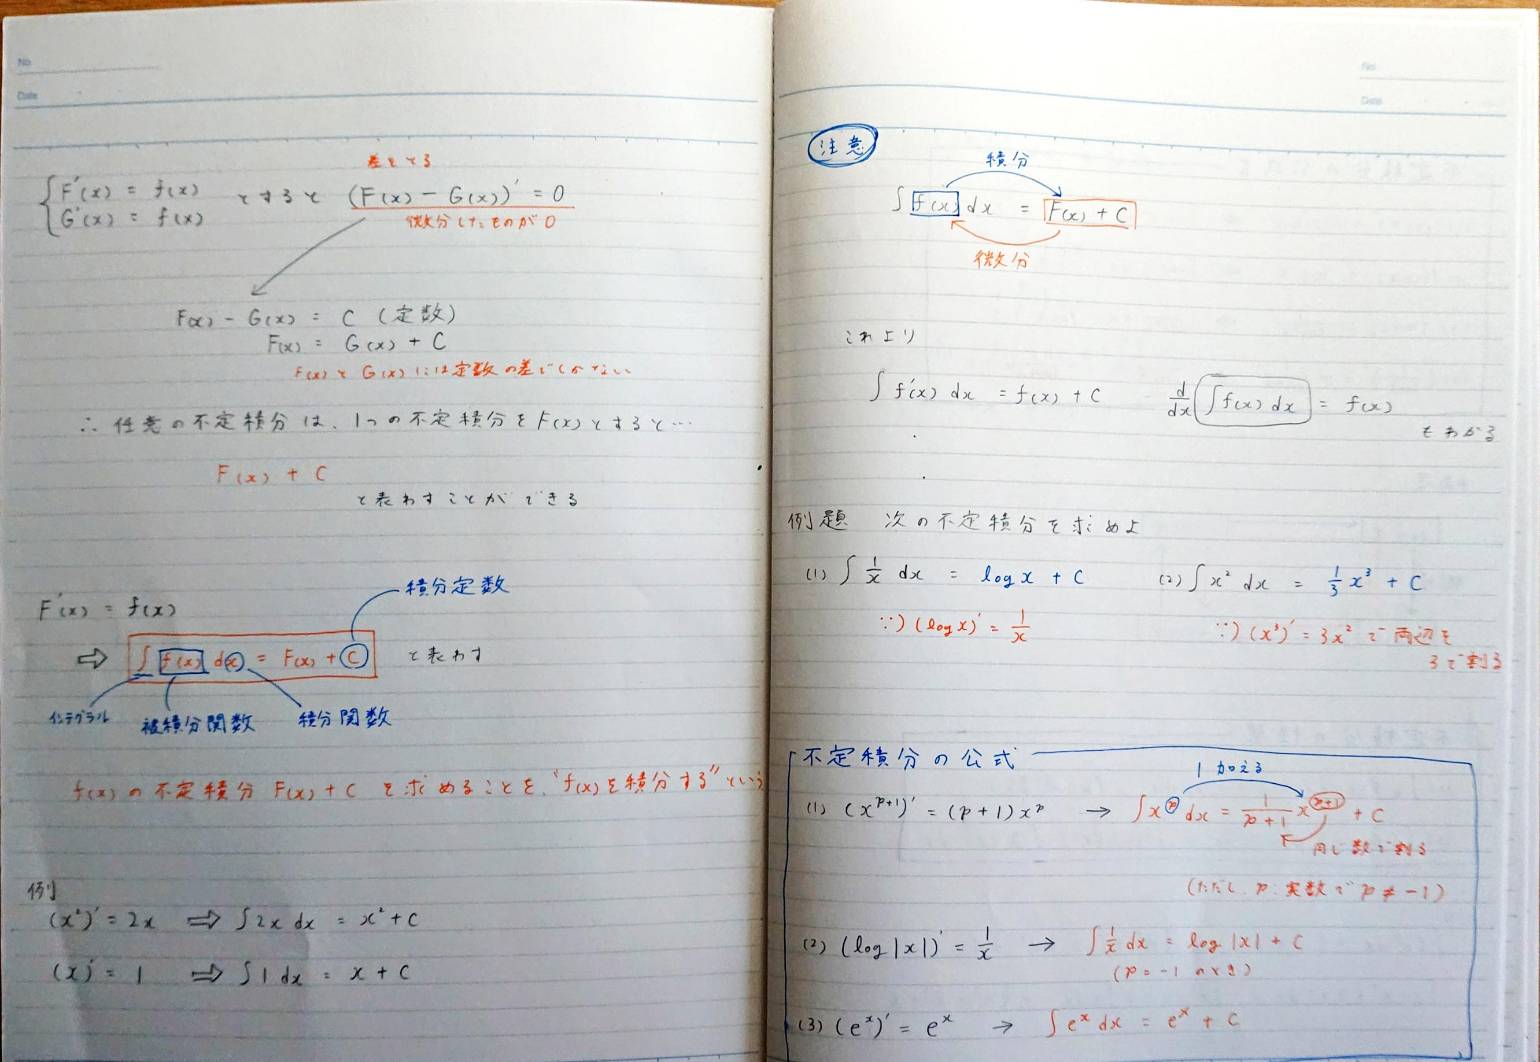 No.
Date
差をとる
F'(x) = f(x)
G'(x) = f(x)
とすると (F(x) - G(x))' = 0
微分したものが0
F(x) - G(x) = C (定数)
F(x) = G(x) + C
F(x)とG(x)には定数の差でしかない
∴ 任意の不定積分は、1つの不定積分をF(x)とすると…
F(x) + C
と表わすことができる
積分定数
F'(x) = f(x)
⇒ ∫f(x)dx = F(x) + C と表わす
インテグラル 被積分関数 積分関数
f(x)の不定積分 F(x) + C を求めることを、"f(x)を積分する"という
例
(x²)' = 2x ⇒ ∫2x dx = x² + C
(x)' = 1 ⇒ ∫1 dx = x + C
No.
Date
注意
積分
∫f(x)dx = F(x) + C
微分
これより
∫f'(x)dx = f(x) + C d/dx(∫f(x)dx) = f(x)
もわかる
例題 次の不定積分を求めよ
(1) ∫1/x dx = log x + C (2) ∫x² dx = 1/3 x³ + C
∵) (log x)' = 1/x ∵) (x³)' = 3x² で両辺を
3で割る
不定積分の公式
1加える
(1) (x^{p+1})' = (p+1)x^p → ∫x^p dx = 1/(p+1) x^{p+1} + C
同じ数で割る
(ただし、p:実数で p ≠ -1)
(2) (log|x|)' = 1/x → ∫1/x dx = log|x| + C
(p = -1 のとき)
(3) (e^x)' = e^x → ∫e^x dx = e^x + C